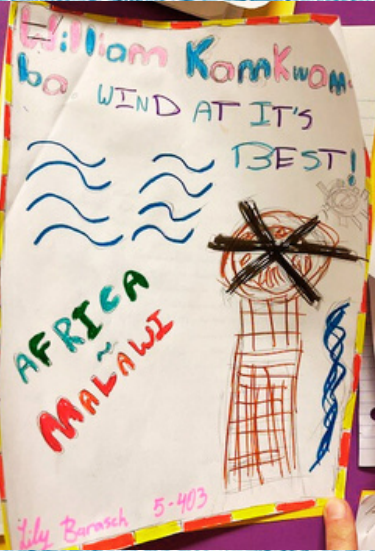 William Kamkwam-
ba
WIND AT IT'S
BEST!
AFRICA
~
MALAWI
Lily Barasch 5-403